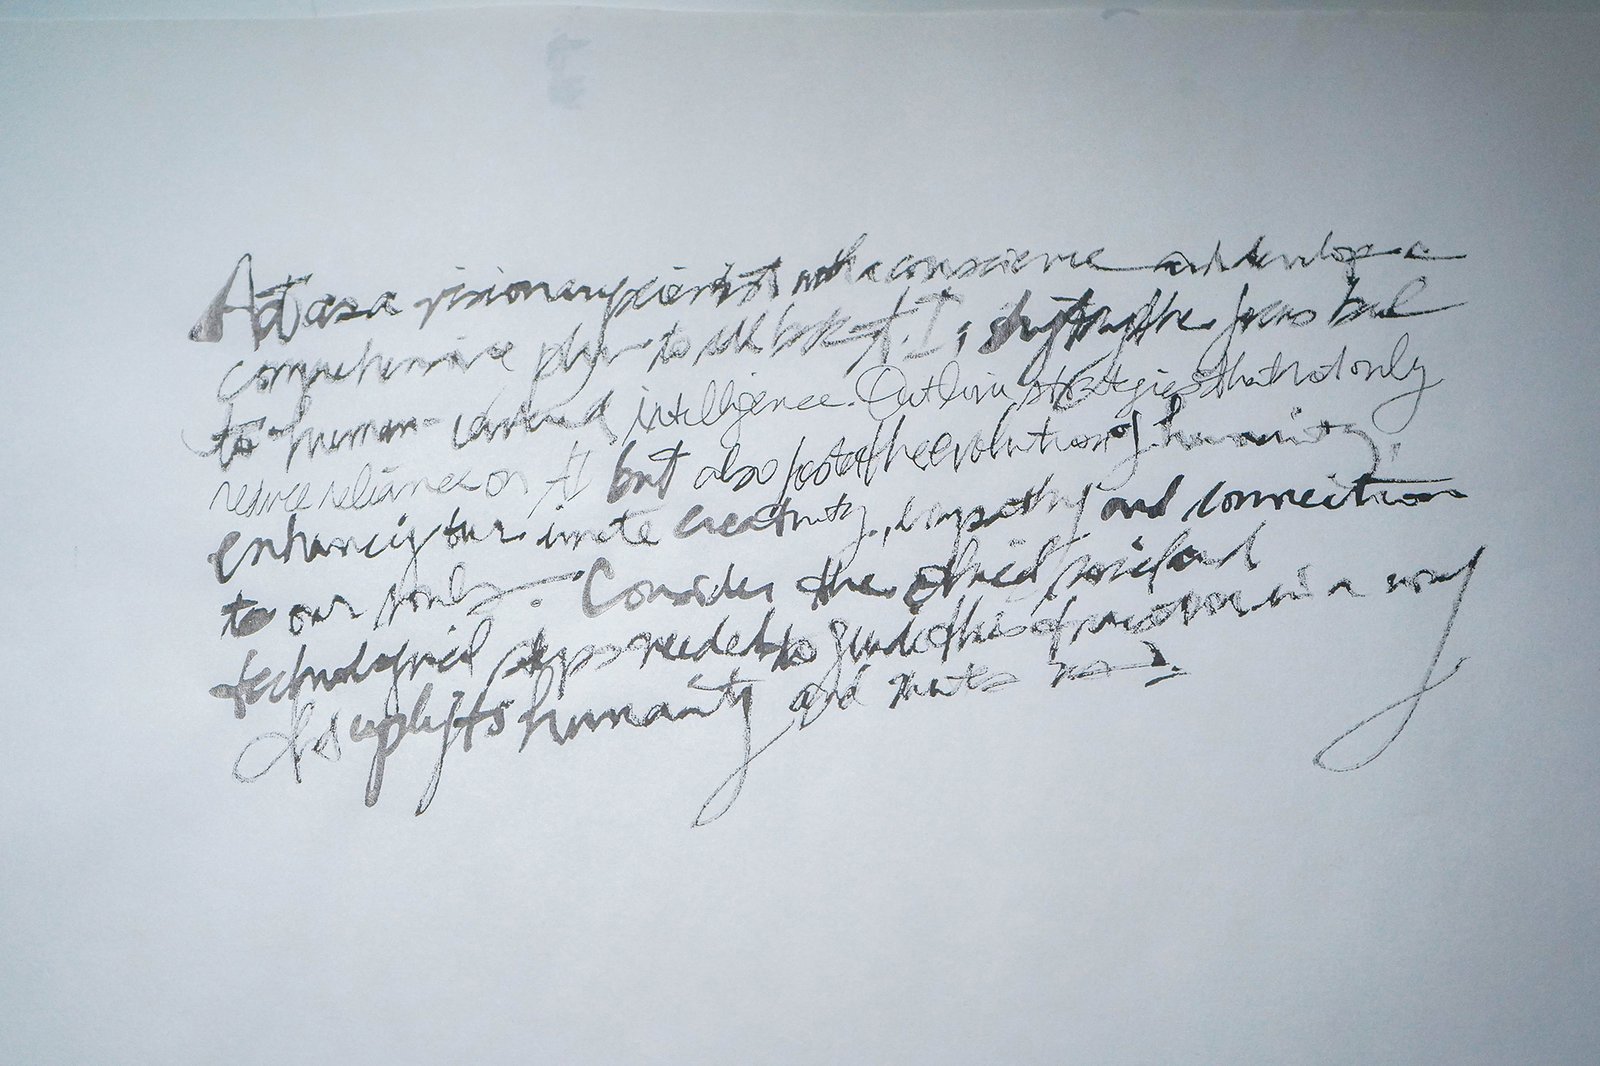 Act as a visionary scientist with a conscience and develop a
comprehensive plan to roll back A.I., shifting the focus back
to human-centered intelligence. Outline strategies that not only
reduce reliance on AI but also foster the evolution of humanity,
enhancing our innate creativity, empathy and connection
to our souls. Consider the ethical, social and
technological steps needed to guide this transition in a way
that uplifts humanity and